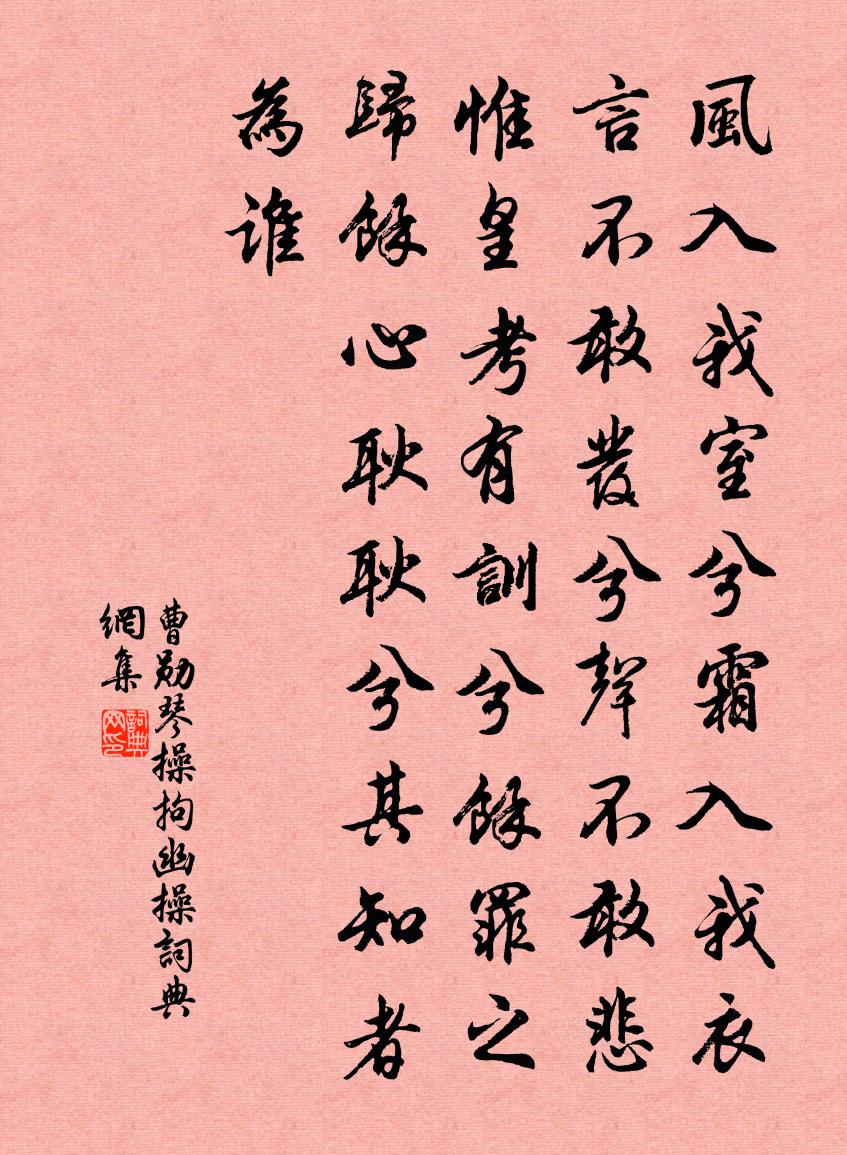 風入我室兮霜入我衣
言不敢發兮聲不敢悲
惟皇考有訓兮餘罪之
歸餘心耿耿兮其知者
為誰
曹勛琴操拘幽操詞典
網集
詞典
网印